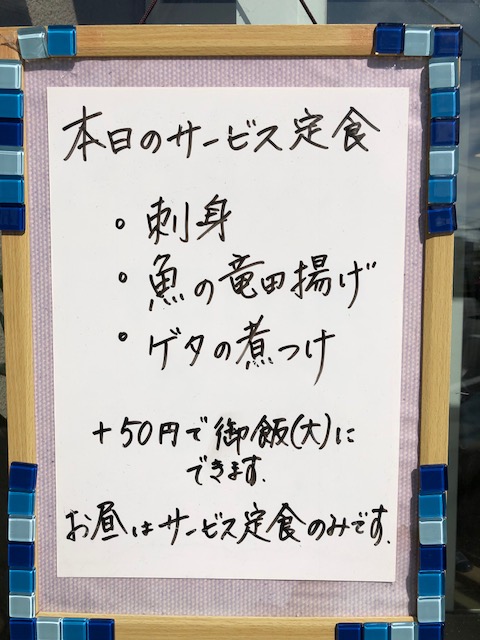 本日のサービス定食
・刺身
・魚の竜田揚げ
・ゲタの煮つけ
+50円で御飯(大)に
できます.
お昼はサービス定食のみです.